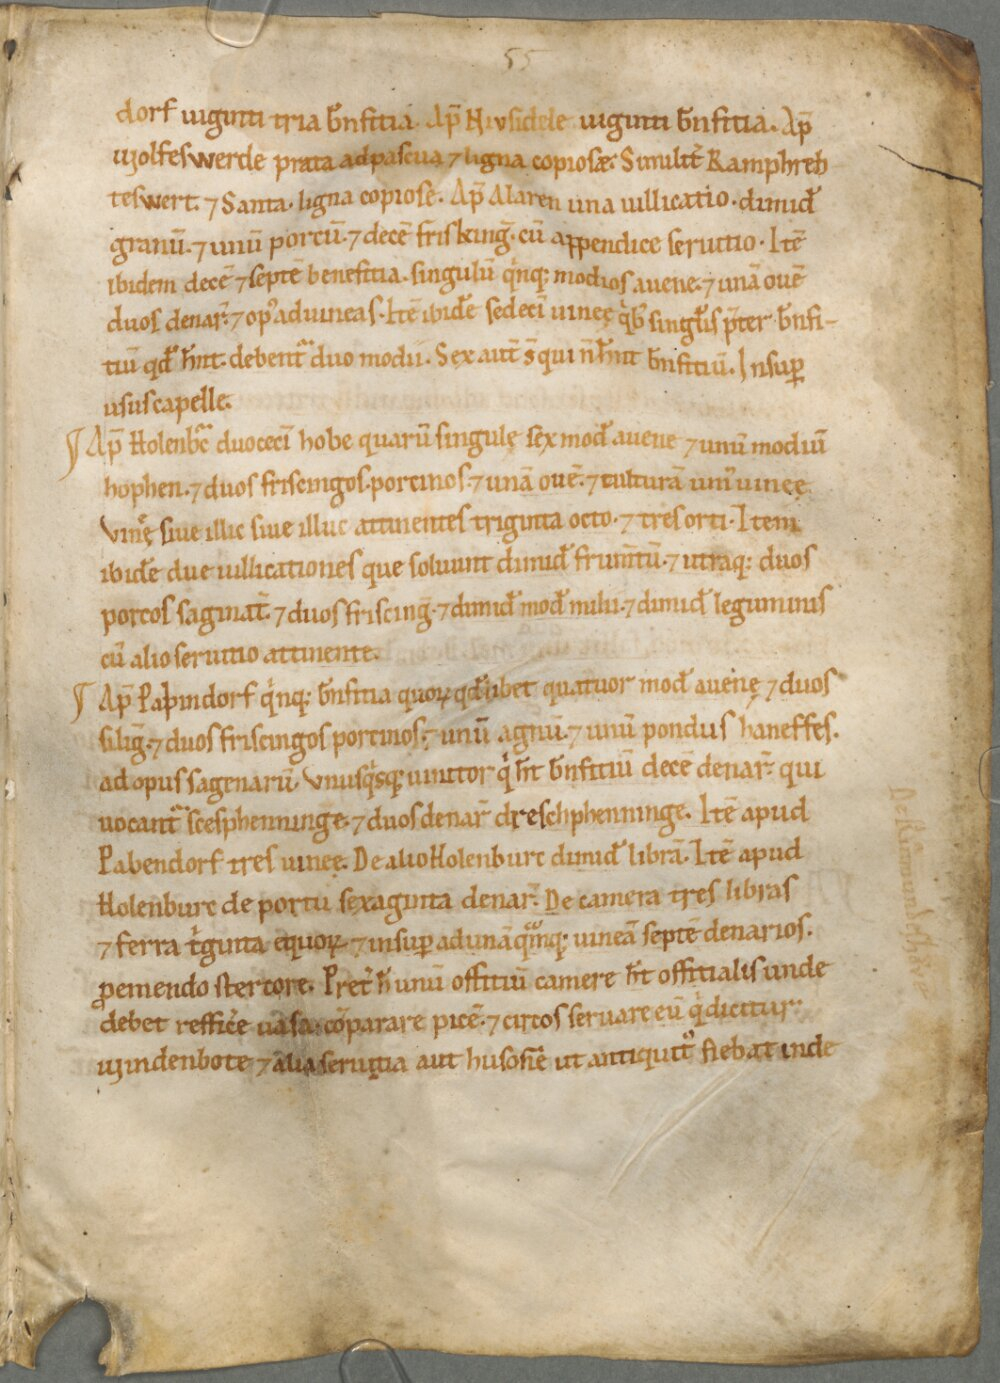 55
dorf uiginti tria bn̄fitia. Ap̄ Niusidele uiginti bn̄fitia. Ap̄
wolfeswerde prata ad pascua ⁊ ligna copiosæ. Similit̄ Ramphreh
teswert. ⁊ Santa. ligna copiose. Ap̄ Alaren una uillicatio. dimid̄
granū. ⁊ unū porcū. ⁊ decē friskinḡ. cū appendice seruitio. Itē
ibidem decē ⁊ septē benefitia. singulū q̇nq; modios auene. ⁊ unā ouē
duos denar̄. ⁊ op⁹ ad uineas. Itē ibidē sedecī uineę q̇b; singl̄is p̄ter bn̄fi-
tiū qd̄ hn̄t. debent᷑ duo modii. Sex aut̄ s̄ qui n̄ hn̄t bn̄fitiū. Insup̱
usus capelle.
Ap̄ Holenbc̄ duocecī hobe quarū singulę sex mod̄ auene ⁊ unū modiū
hophen. ⁊ duos friscingos porcinos. ⁊ unā ouē. ⁊ culturā uni⁹ uineę
Vinęe siue illic siue illuc attinentes triginta octo. ⁊ tres orti. Item
ibidē due uillicationes que soluunt dimid̄ frum̄tū. ⁊ utraq; duos
porcos saginat̄. ⁊ duos friscinḡ. ⁊ dimid̄ mod̄ milii. ⁊ dimid̄ leguminis
cū alio seruitio attinente.
Ap̄ Papindorf q̇nq; bn̄fitia quoꝝ qd̄libet quatuor mod̄ auenę ⁊ duos
siliḡ. ⁊ duos friscingos porcinos. ⁊ unū agnū. ⁊ unū pondus haneffes.
ad opus sagenarū. Vnusq̇sq; uinitor q̇ ht̄ bn̄fitiū decē denar̄. qui
uocant᷑ scesphenninge. ⁊ duos denar̄ dreschphenninge. Itē apud
Pabendorf tres uineę. De alio Holenburc dimid̄ librā. Itē apud
Holenburc de portu sexaginta denar̄. De camera tres libras
⁊ ferra t̓ginta equoꝝ. ⁊ insup̱ ad unāq̄mq; uineā septē denarios.
ꝓ emendo stercore. Pret̄ h̄ unū offitiū camere ht̄ offitialis unde
debet reffic̄e uasa. cōparare picē. ⁊ circos seruare cū q̇ dicitur
windenbote ⁊ alia seruitia aut husonē ut antiquit⁹ fiebat inde